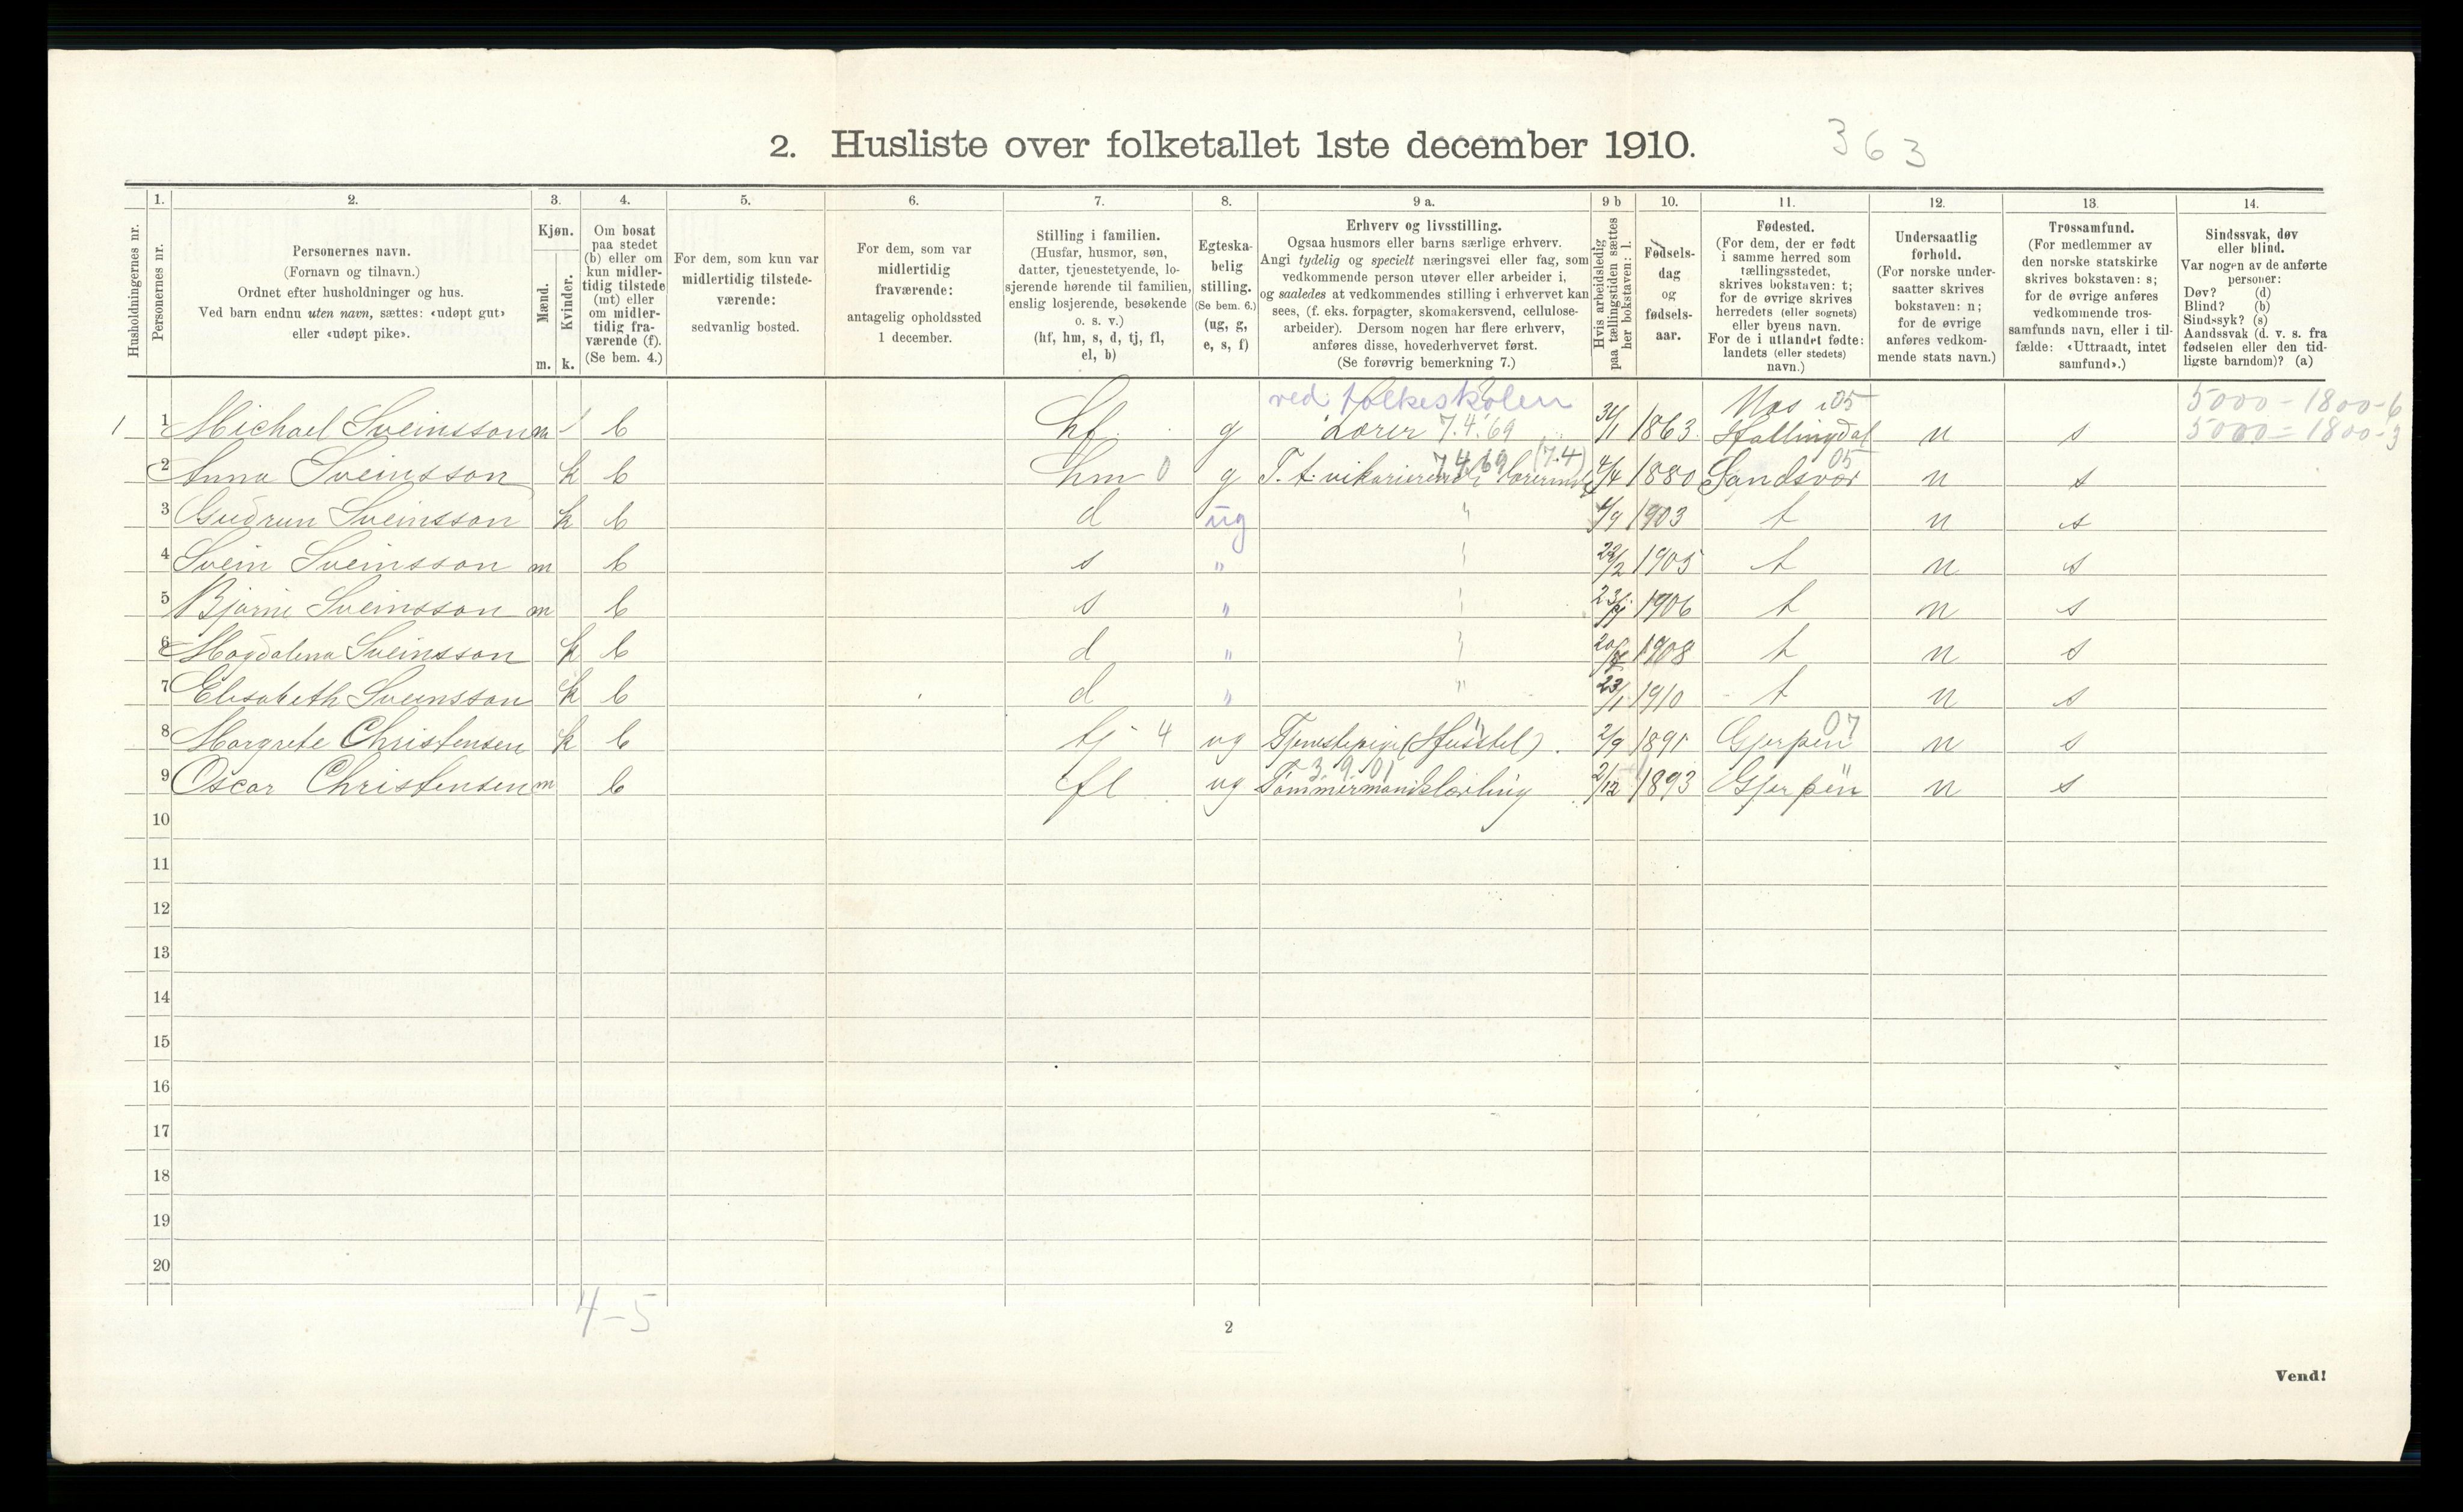 2. Husliste over folketallet 1ste december 1910. 363
Husholdningernes nr.
1. Personernes nr.
2. Personernes navn.
(Fornavn og tilnavn.)
Ordnet efter husholdninger og hus.
Ved barn endnu uten navn, sættes: «udøpt gut»
eller «udøpt pike».
3. Kjøn.
Mænd. m.
Kvinder. k.
4. Om bosat
paa stedet
(b) eller om
kun midler-
tidig tilstede
(mt) eller
om midler-
tidig fra-
værende (f).
(Se bem. 4.)
5. For dem, som kun var
midlertidig tilstede-
værende:
sedvanlig bosted.
6. For dem, som var
midlertidig
fraværende:
antagelig opholdssted
1 december.
7. Stilling i familien.
(Husfar, husmor, søn,
datter, tjenestetyende, lo-
sjerende hørende til familien,
enslig losjerende, besøkende
o. s. v.)
(hf, hm, s, d, tj, fl,
el, b)
8. Egteska-
belig
stilling.
(Se bem. 6.)
(ug, g,
e, s, f)
9 a. Erhverv og livsstilling.
Ogsaa husmors eller barns særlige erhverv.
Angi tydelig og specielt næringsvei eller fag, som
vedkommende person utøver eller arbeider i,
og saaledes at vedkommendes stilling i erhvervet kan
sees, (f. eks. forpagter, skomakersvend, cellulose-
arbeider). Dersom nogen har flere erhverv,
anføres disse, hovederhvervet først.
(Se forøvrig bemerkning 7.)
9 b Hvis arbeidsledig
paa tællingstiden sættes
her bokstaven: l.
10. Fødsels-
dag
og
fødsels-
aar.
11. Fødested.
(For dem, der er født
i samme herred som
tællingsstedet,
skrives bokstaven: t;
for de øvrige skrives
herredets (eller sognets)
eller byens navn.
For de i utlandet fødte:
landets (eller stedets)
navn.)
12. Undersaatlig
forhold.
(For norske under-
saatter skrives
bokstaven: n;
for de øvrige
anføres vedkom-
mende stats navn.)
13. Trossamfund.
(For medlemmer av
den norske statskirke
skrives bokstaven: s;
for de øvrige anføres
vedkommende tros-
samfunds navn, eller i til-
fælde: «Uttraadt, intet
samfund».)
14. Sindssvak, døv
eller blind.
Var nogen av de anførte
personer:
Døv? (d)
Blind? (b)
Sindssyk? (s)
Aandssvak (d. v. s. fra
fødselen eller den tid-
ligste barndom)? (a)
ved folkeskolen Nes i 05 5000 - 1800-6
1 1 Michael Sveinsson m b hf g Lærer 7.4.69 31/1 1863 Hallingdal n s 5000 = 1800-3
2 Anna Sveinsson k b hm 0 g T. t. vikarierende lærerinde 7.4.69 (7.4) 4/4 1880 Sandsvær 05 n s
3 Gudrun Sveinsson k b d ug " 4/9 1903 t n s
4 Svein Sveinsson m b s " 22/2 1905 t n s
5 Bjarne Sveinsson m b s " 1906 t n s
6 Magdalena Sveinsson k b d " 1908 t n s
7 Elisabeth Sveinsson k b d " " 23/1 1910 t n s
8 Margrete Christensen k b tj 4 ug Tjenestepige (Husstel) 2/9 1891 Gjerpen 07 n s
9 Oscar Christensen m b fl ug 3.9.01 Tømmermandslærling 2/12 1893 Gjerpen " n s
10
11
12
13
14
15
16
17
18
19
20
4-5
2
Vend!